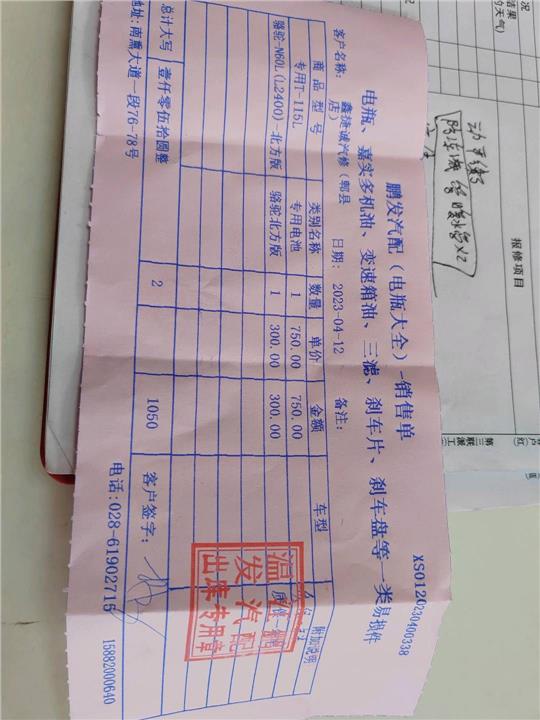 鹏发汽配（电瓶大全）-销售单
XS0120230400338
电瓶、嘉实多机油、变速箱油、三滤、刹车片、刹车盘等一类易损件
客户名称： 鑫捷诚汽修（郫县店） 日期： 2023-04-12 备注：
商品型号 类别名称 数量 单价 金额 车型 附加说明
专用T-115L 专用电池 1 750.00 750.00
骆驼-N60L(L2400)-北方版 骆驼北方版 1 300.00 300.00
总计大写 壹仟零伍拾圆整 2 1050
地址：南熏大道一段76-78号
客户签字：
电话：028-61902715 15882000640
发汽配
出库专用章
报修项目
动平衡